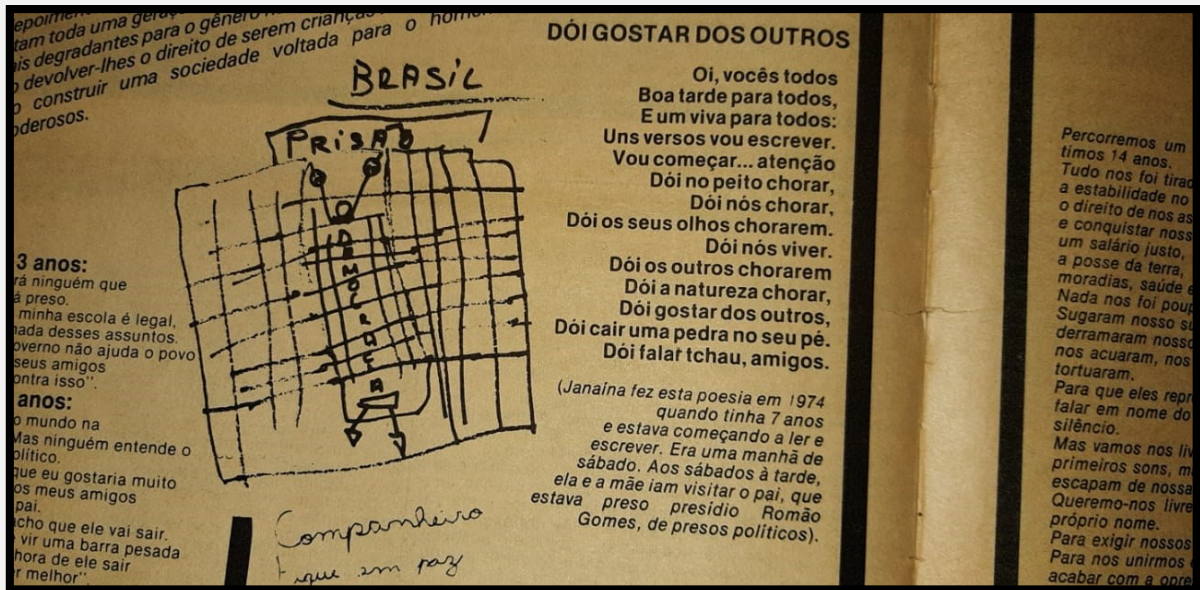 tam toda uma
is degradantes para o gênero
devolver-lhes o direito de serem crianças
construir uma sociedade voltada para o
oderosos.
3 anos:
rá ninguém que
á preso.
minha escola é legal,
nada desses assuntos.
overno não ajuda o povo
seus amigos
ontra isso".
anos:
o mundo na
Mas ninguém entende o
olítico.
que eu gostaria muito
os meus amigos
pai.
cho que ele vai sair.
vir uma barra pesada
hora de ele sair
r melhor".
BRASIL
PRISÃO
DEMOCRACIA
Companheiro
fique em paz
DÓI GOSTAR DOS OUTROS
Oi, vocês todos
Boa tarde para todos,
E um viva para todos:
Uns versos vou escrever.
Vou começar... atenção
Dói no peito chorar,
Dói nós chorar,
Dói os seus olhos chorarem.
Dói nós viver.
Dói os outros chorarem
Dói a natureza chorar,
Dói gostar dos outros,
Dói cair uma pedra no seu pé.
Dói falar tchau, amigos.
(Janaína fez esta poesia em 1974
quando tinha 7 anos
e estava começando a ler e
escrever. Era uma manhã de
sábado. Aos sábados à tarde,
ela e a mãe iam visitar o pai, que
estava preso presídio Romão
Gomes, de presos políticos).
Percorremos um
timos 14 anos.
Tudo nos foi tirad
a estabilidade no
o direito de nos as
e conquistar noss
um salário justo,
a posse da terra,
moradias, saúde e
Nada nos foi poup
Sugaram nosso
derramaram nosso
nos acuaram, nos
torturaram.
Para que eles repr
falar em nome do
silêncio.
Mas vamos nos liv
primeiros sons, m
escapam de nossa
Queremo-nos livre
próprio nome.
Para exigir nossos
Para nos unirmos
acabar com a opre